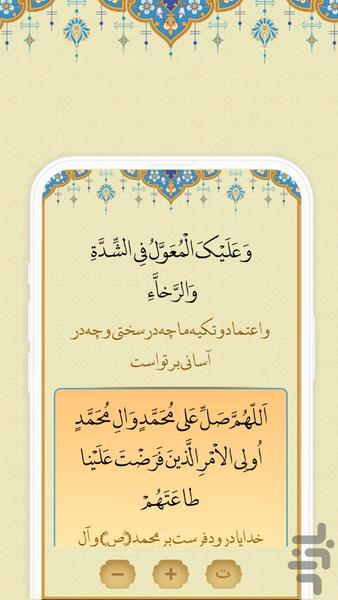 وَعَلَيْكَ الْمُعَوَّلُ فِی الشِّدَّةِ
وَالرَّخآءِ
و اعتماد و تکیه ما چه در سختی و چه در
آسانی بر تو است
اَللّهُمَّ صَلِّ عَلی مُحَمَّدٍ وَالِ مُحَمَّدٍ
اُولِی الاَمْرِ الَّذینَ فَرَضْتَ عَلَیْنا
طاعَتَهُمْ
خدایا درود فرست بر محمد (ص) و آل
− + ت
بازار